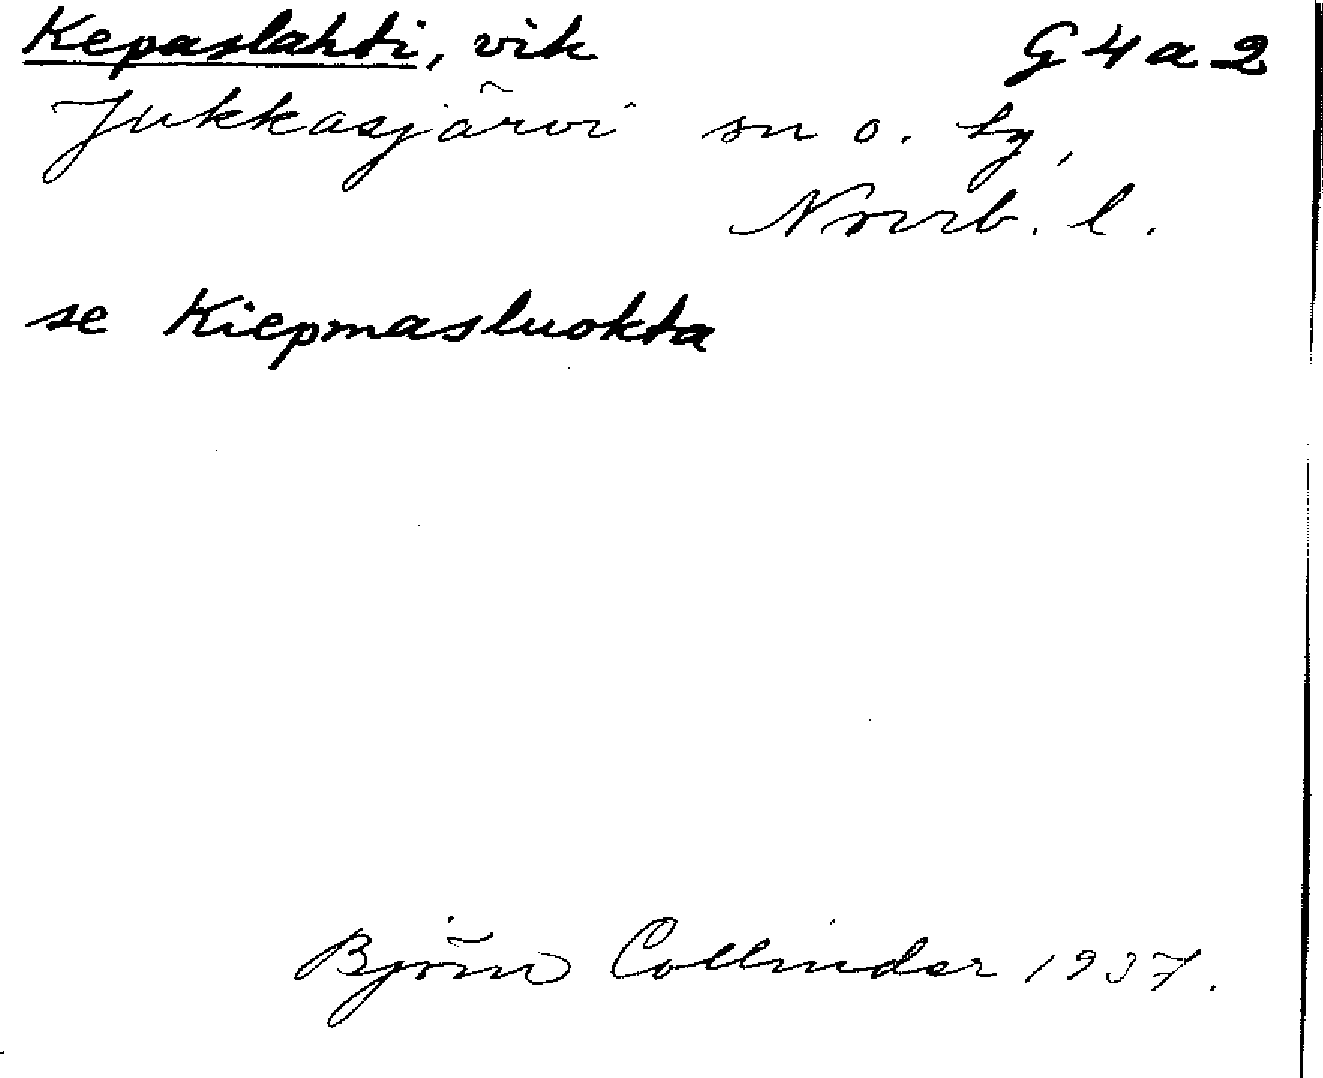 Kepaslahti, vik G4a2
Jukkasjärvi sn o. by,
Norrb. l.
se Kiepmasluokta
Björn Collinder 1937.